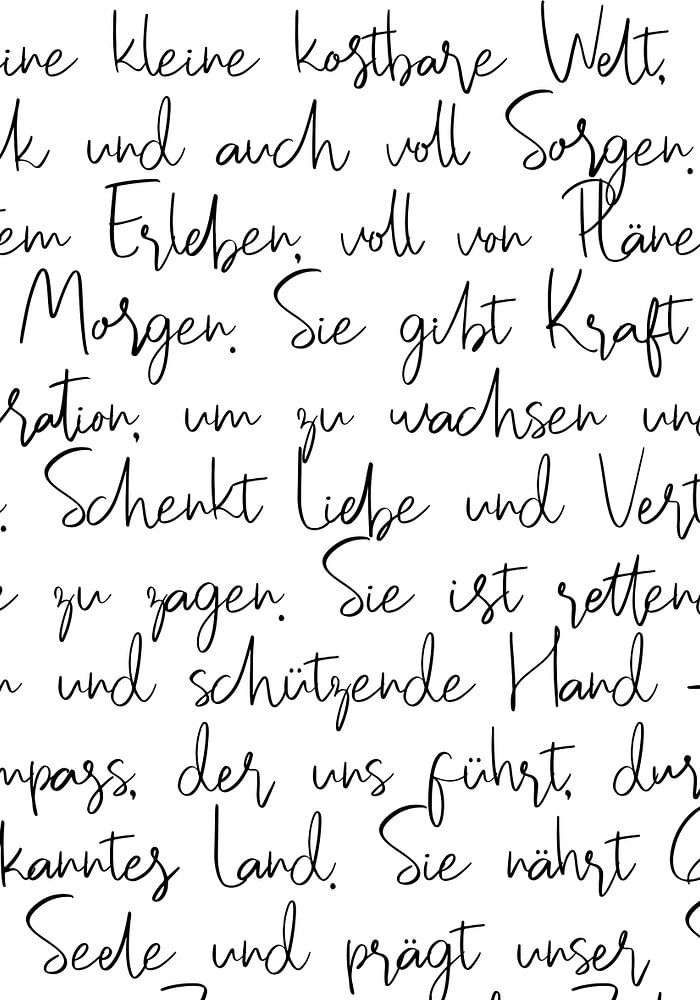 ine kleine kostbare Welt,
k und auch voll Sorgen.
em Erleben, voll von Pläne
Morgen. Sie gibt Kraft
ration, um zu wachsen un
. Schenkt Liebe und Vert
e zu zagen. Sie ist retten
n und schützende Hand -
mpass, der uns führt, dur
kanntes Land. Sie nährt
Seele und prägt unser